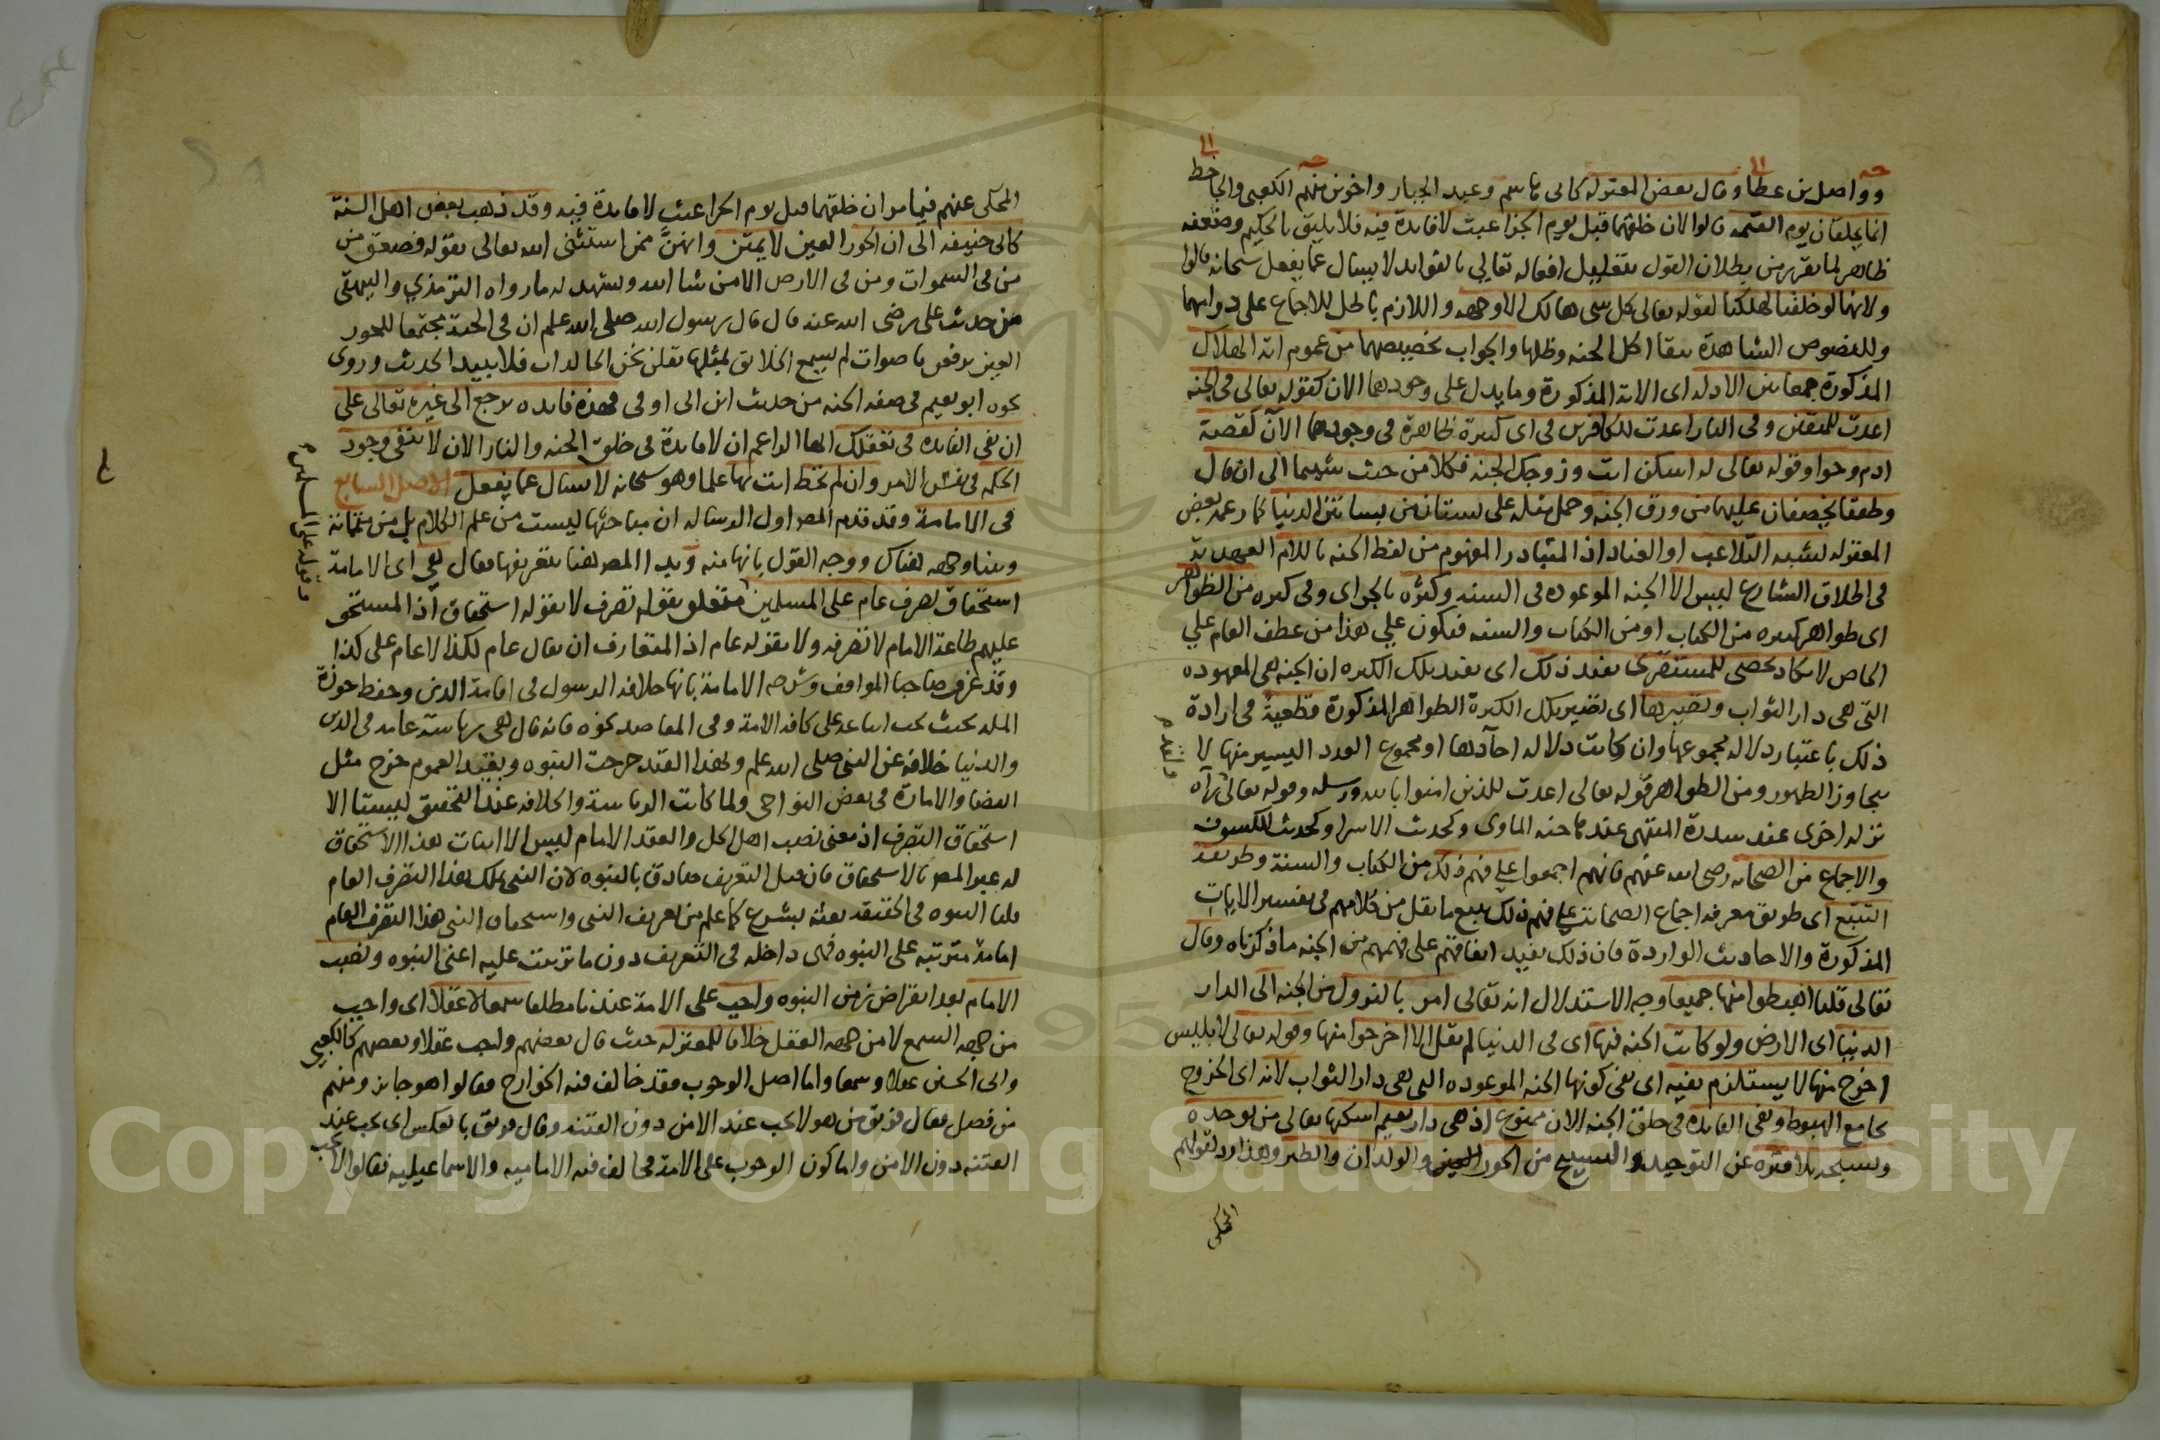 وواصل بن عطا وقال بعض المعتزله كابى هاشم وعبد الجبار واخرين منهم الكعبى والجاحظ
انما يخلقان يوم القيمه قالوا لان خلقهما قبل يوم الجزا عبث لا فايدة فيه فلا يليق بالحكيم وضعفه
ظاهر لما تقرر من بطلان القول بتعليل افعاله تعالى بالفوايد لا يسال عما يفعل سبحانه قالوا
ولانهما لو خلقتا لهلكتا لقوله تعالى كل شى هالك الا وجهه واللازم باطل للاجماع على دوامهما
وللنصوص الشاهدة ببقا اكل الجنه وظلها والجواب تخصيصهما من عموم اية الهلاك
المذكورة جمعا بين الادله اى الاية المذكورة وما يدل على وجودهما الان كقوله تعالى فى الجنه
اعدت للمتقين وفى النار اعدت للكافرين فى اى كثيرة ظاهرة فى وجودهما الآن كقصة
ادم وحوا وقوله تعالى له اسكن انت وزوجك الجنه فكلا من حيث شيتما الى ان قال
وطفقا يخصفان عليهما من ورق الجنه وحمل مثله على بستان من بساتين الدنيا كما زعمه بعض
المعتزله لشبه التلاعب او العناد اذ المتبادر المفهوم من لفظ الجنه باللام العهديه
فى اطلاق الشارع ليس الا الجنه الموعوده فى السنه وكثره بالجر اى وفى كثره من الظواهر
اى ظواهر كثيره من الكتاب او من الكتاب والسنه فيكون على هذا من عطف العام على
الخاص لا تكاد تحصى للمستقرى تفيد ذلك اى تفيد تلك الكثره ان الجنه هى المعهوده
التى هى دار الثواب وتصيرها اى تصير تلك الكثرة الظواهر المذكورة قطعية فى ارادة
ذلك باعتبار دلاله مجموعها وان كانت دلاله احآدها او مجموع العدد اليسير منها لا
يجاوز الظهور ومن الظواهر قوله تعالى اعدت للذين امنوا بالله ورسله وقوله تعالى رآه
نزله اخرى عند سدرة المنتهى عندها جنه الماوى وكحديث الاسرا وكحديث الكسوف
والاجماع من الصحابه رضى الله عنهم فانهم اجمعوا على فهم ذلك من الكتاب والسنة وطريقه
التتبع اى طريق معرفه اجماع الصحابة على فهم ذلك تتبع ما نقل من كلامهم فى تفسير الايات
المذكورة والاحاديث الواردة فان ذلك يفيد اتفاقهم على فهمهم من الجنه ما ذكرناه وقال
تعالى قلنا اهبطوا منها جميعا وجه الاستدلال انه تعالى امر بالنزول من الجنه الى الدار
الدنيا اى الارض ولو كانت الجنه فيها اى فى الدنيا لم يقل الا اخرجوا منها وقوله تعالى لابليس
اخرج منها لا يستلزم نفيه اى نفى كونها الجنه الموعوده التى هى دار الثواب لانه اى الخروج
يجامع الهبوط ونفى الفايده فى خلق الجنه الان ممنوع اذ هى دار نعيم اسكنها تعالى من يوحده
ويسبحه بلا فتره عن التوحيد والتسبيح من الحور العين والولدان والطير وهذا رد لقولهم
المحكى
المحكى عنهم فيما مر ان خلقهما قبل يوم الجزا عبث لا فايدة فيه وقد ذهب بعض اهل السنة
كابى حنيفه الى ان الحور العين لا يمتن وانهن ممن استثنى الله تعالى بقوله فصعق من
من فى السموات ومن فى الارض الا من شا الله ويشهد له ما رواه الترمذي والبيهقى
من حديث على رضى الله عنه قال قال رسول الله صلى الله علم ان فى الجنة مجتمعا للحور
العين يرفعن باصوات لم يسمع الخلائق بمثلها يقلن نحن الخالدات فلا نبيد الحديث وروى
نحوه ابو نعيم فى صفه الجنه من حديث ابن ابى اوفى فهذه فايده ترجع الى غيره تعالى على
ان نفى الفايده فى تعقلك ايها الزاعم ان لا فايدة فى خلق الجنه والنار الان لا ينفى وجود
الحكمه فى نفس الامر وان لم تحط انت بها علما وهو سبحانه لا يسال عما يفعل الاصل السابع
فى الامامة وقد قدم المص اول الرساله ان مباحثها ليست من علم الكلام بل من متمماته
وبينا وجهه هناك ووجه القول بانها منه وبدا المص هنا بتعريفها فقال هى اى الامامة
استحقاق تصرف عام على المسلمين متعلق بقوله تصرف لا بقوله استحقاق اذ المستحق
عليهم طاعة الامام لا تصرفه ولا بقوله عام اذ المتعارف ان يقال عام لكذا لا عام على كذا
وقد عرف صاحبا المواقف وشرحه الامامة بانها خلافه الرسول فى اقامة الدين وحفظ حوزة
المله بحيث يجب اتباعه على كافه الامة وفى المقاصد نحوه فانه قال هى رياسة عامه فى الدين
والدنيا خلافه عن النبى صلى الله علم وبهذا القيد خرجت النبوه وبقيد العموم خرج مثل
القضا والامارة فى بعض النواحى ولما كانت الرياسة والخلافه عند التحقيق ليستا الا
استحقاق التصرف اذ معنى نصب اهل الحل والعقد الامام ليس الا اثبات هذا الاستحقاق
له عبر المص بالاستحقاق فان قيل التعريف صادق بالنبوه لان النبى يملك هذا التصرف العام
قلنا النبوه فى الحقيقه بعثه بشرع كما علم من تعريف النبى واستحقاق النبى هذا التصرف العام
امامة مترتبه على النبوه فهى داخله فى التعريف دون ما ترتبت عليه اعنى النبوه ونصب
الامام بعد انقراض زمن النبوه واجب على الامة عندنا مطلقا سمعا لا عقلا اى واجب
من جهه السمع لا من جهه العقل خلافا للمعتزله حيث قال بعضهم واجب عقلا وبعضهم كالكعبى
وابى الحسين عقلا وسمعا واما اصل الوجوب فقد خالف فيه الخوارج فقالوا هو جايز ومنهم
من فصل فقال فريق من هولا يجب عند الامن دون الفتنه وقال فريق بالعكس اى يجب عند
الفتنه دون الامن واما كون الوجوب على الامة فخالف فيه الاماميه والاسماعيليه فقالوا لا يجب
Copyright © King Saud University